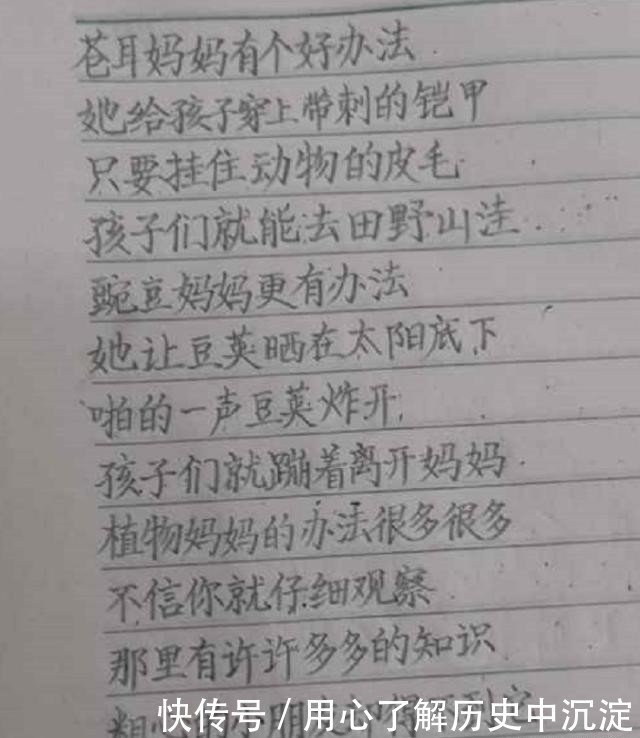 苍耳妈妈有个好办法
她给孩子穿上带刺的铠甲
只要挂住动物的皮毛
孩子们就能去田野山洼
豌豆妈妈更有办法
她让豆荚晒在太阳底下
啪的一声豆荚炸开
孩子们就蹦着离开妈妈
植物妈妈的办法很多很多
不信你就仔细观察
那里有许许多多的知识
粗心的小朋友却得不到它
快传号/用心了解历史中沉淀